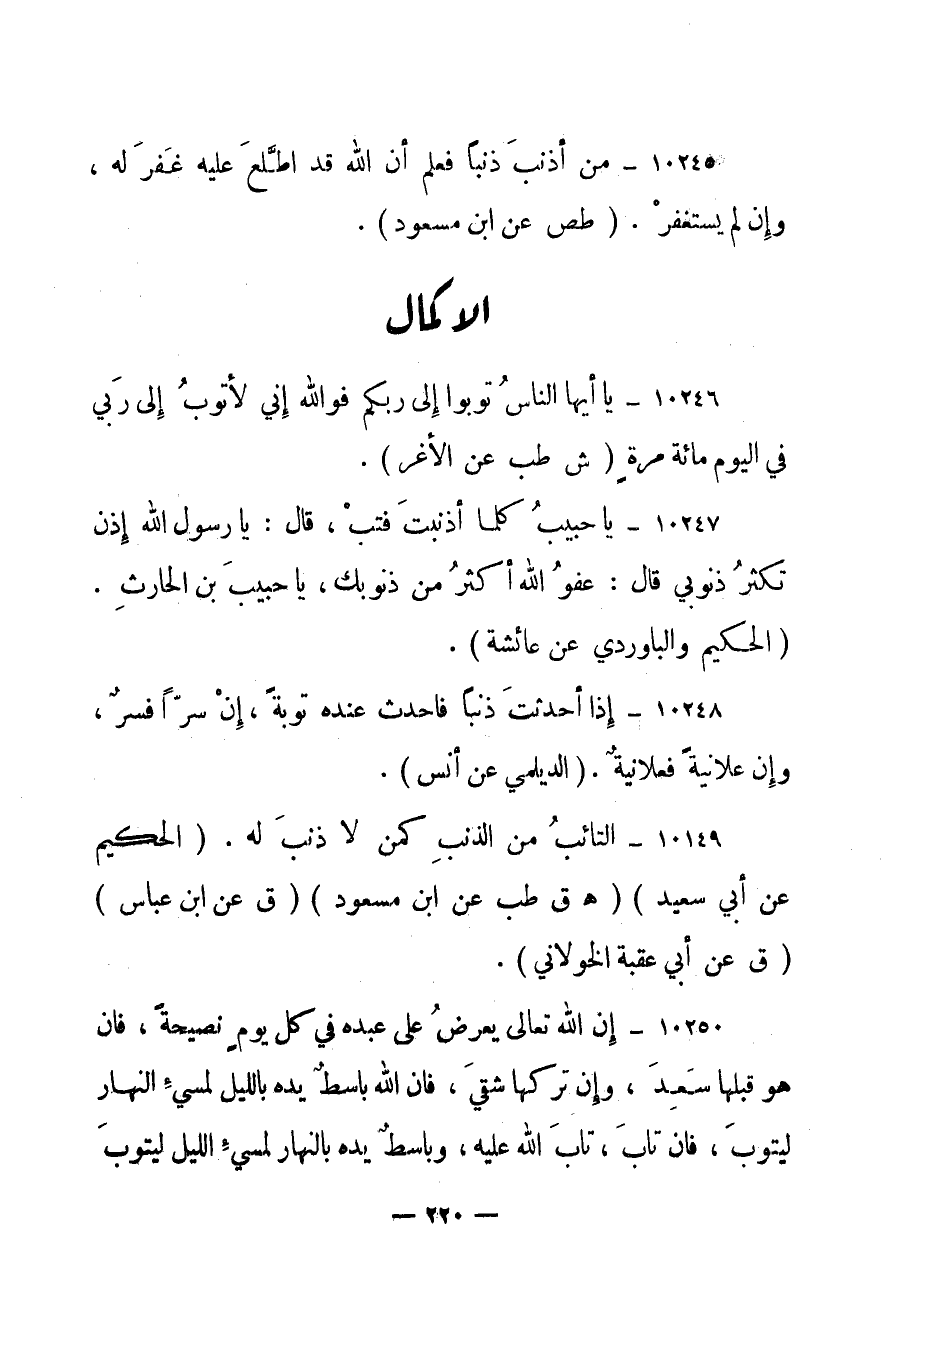 ١٠٢٤٥ ـ من أذنبَ ذنباً فعلم أن الله قد اطَّلعَ عليه غَفرَ له ،
وإن لم يستغفرْ . ( طص عن ابن مسعود ) .
الاكمال
١٠٢٤٦ ـ يا أيها الناسُ توبوا إلى ربكم فوالله إني لأتوبُ إلى ربَي
في اليوم مائة مرةٍ ( ش طب عن الأغر ) .
١٠٢٤٧ ـ يا حبيبُ كلما أذنبتَ فتبْ ، قال : يا رسول الله إذن
تكثرُ ذنوبي قال : عفوُ الله أكثرُ من ذنوبك ، يا حبيبَ بن الحارثِ .
( الحكيم والباوردي عن عائشة ) .
١٠٢٤٨ ـ إذا أحدثتَ ذنباً فاحدث عنده توبةً ، إنْ سرّاً فسرٌ ،
وإن علانيةً فعلانيةٌ . ( الديلمي عن أنس ) .
١٠١٤٩ ـ التائبُ من الذنبِ كمن لا ذنبَ له . ( الحكيم
عن أبي سعيد ) ( ه ق طب عن ابن مسعود ) ( ق عن ابن عباس )
( ق عن أبي عقبة الخولاني ) .
١٠٢٥٠ ـ إن الله تعالى يعرضُ على عبده في كل يومٍ نصيحةً ، فان
هو قبلها سَعِدَ ، وإن تركها شقيَ ، فان الله باسطٌ يده بالليل لمسيءِ النهار
ليتوبَ ، فان تابَ ، تابَ الله عليه ، وباسطٌ يده بالنهار لمسيءِ الليل ليتوبَ
— ٢٢٠ —